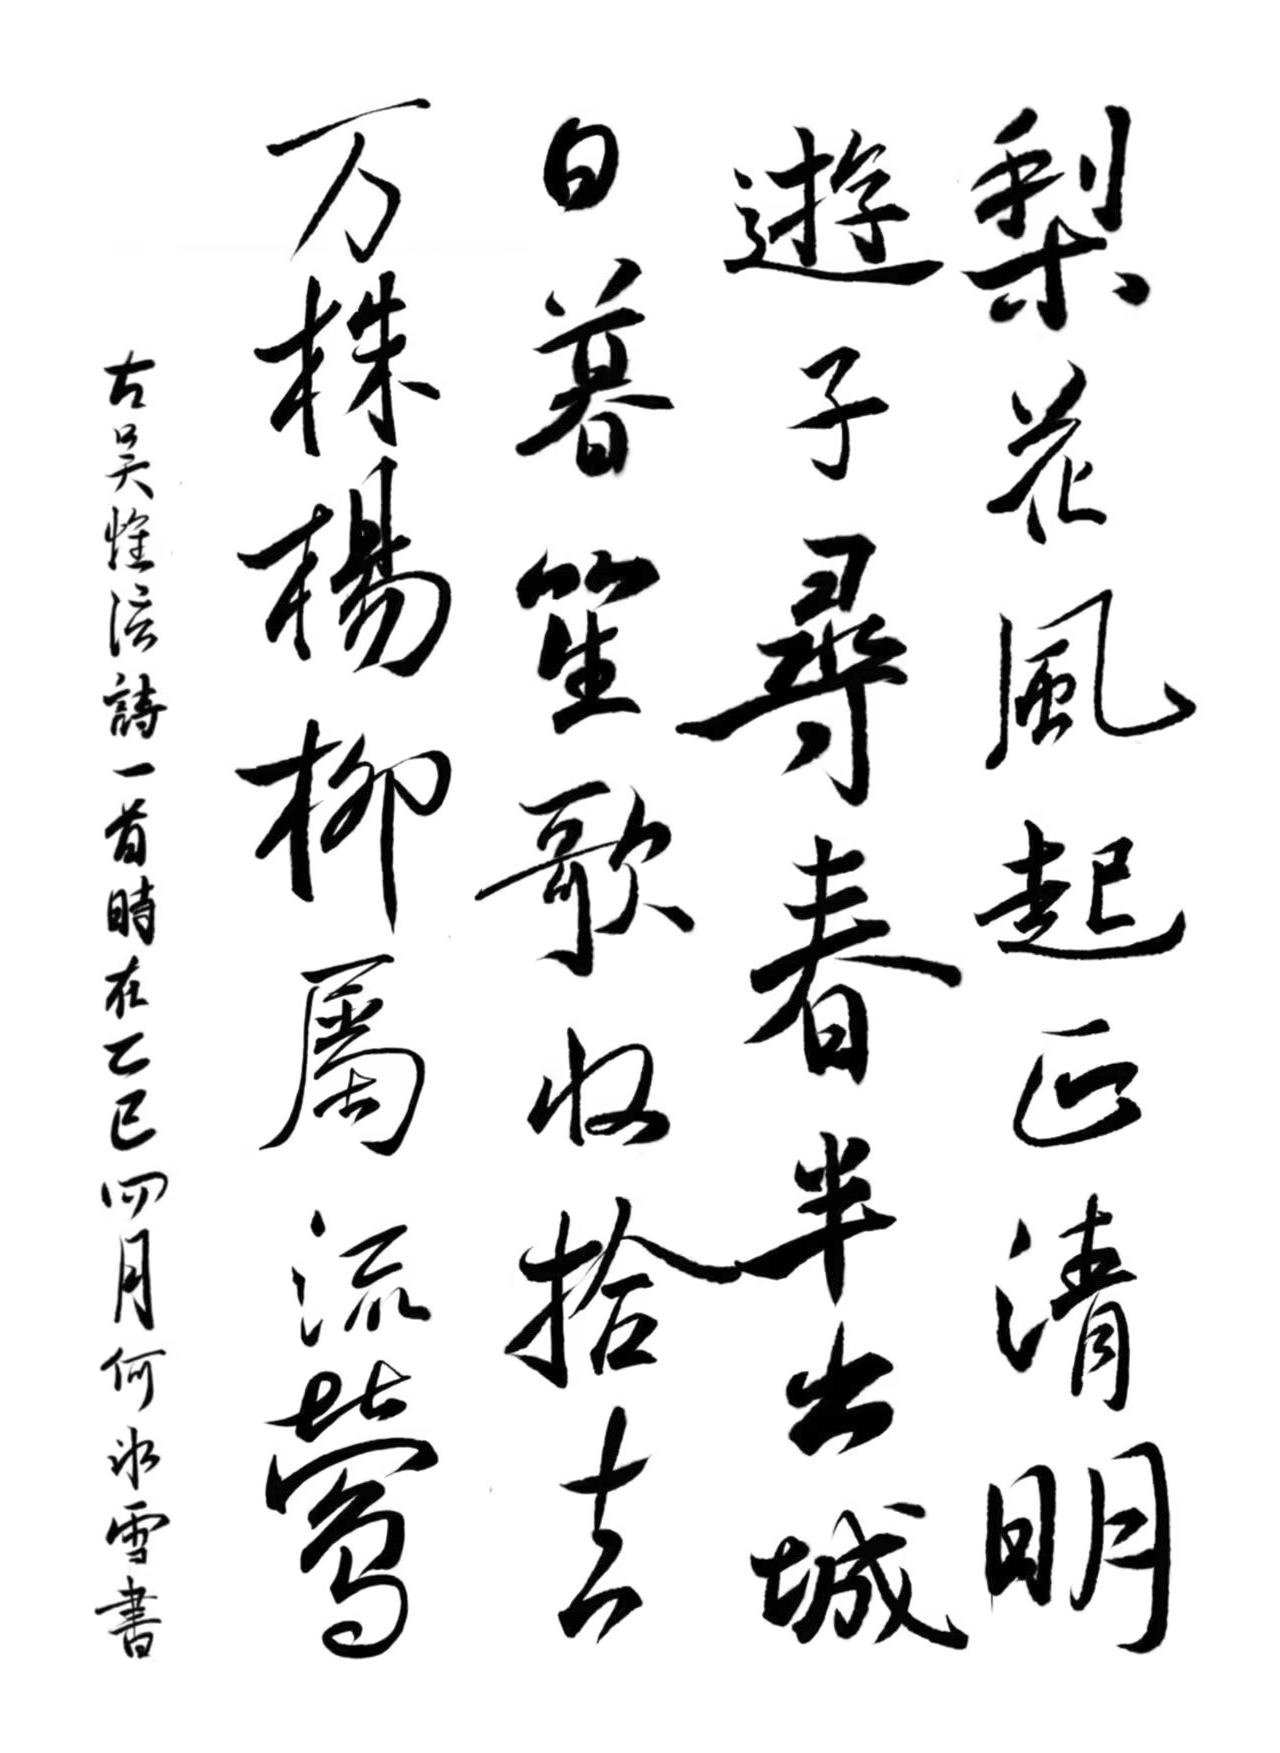 梨花風起正清明
遊子尋春半出城
日暮笙歌收拾去
万株楊柳屬流鶯
古吳惟信詩一首時在乙巳四月何冰雪書